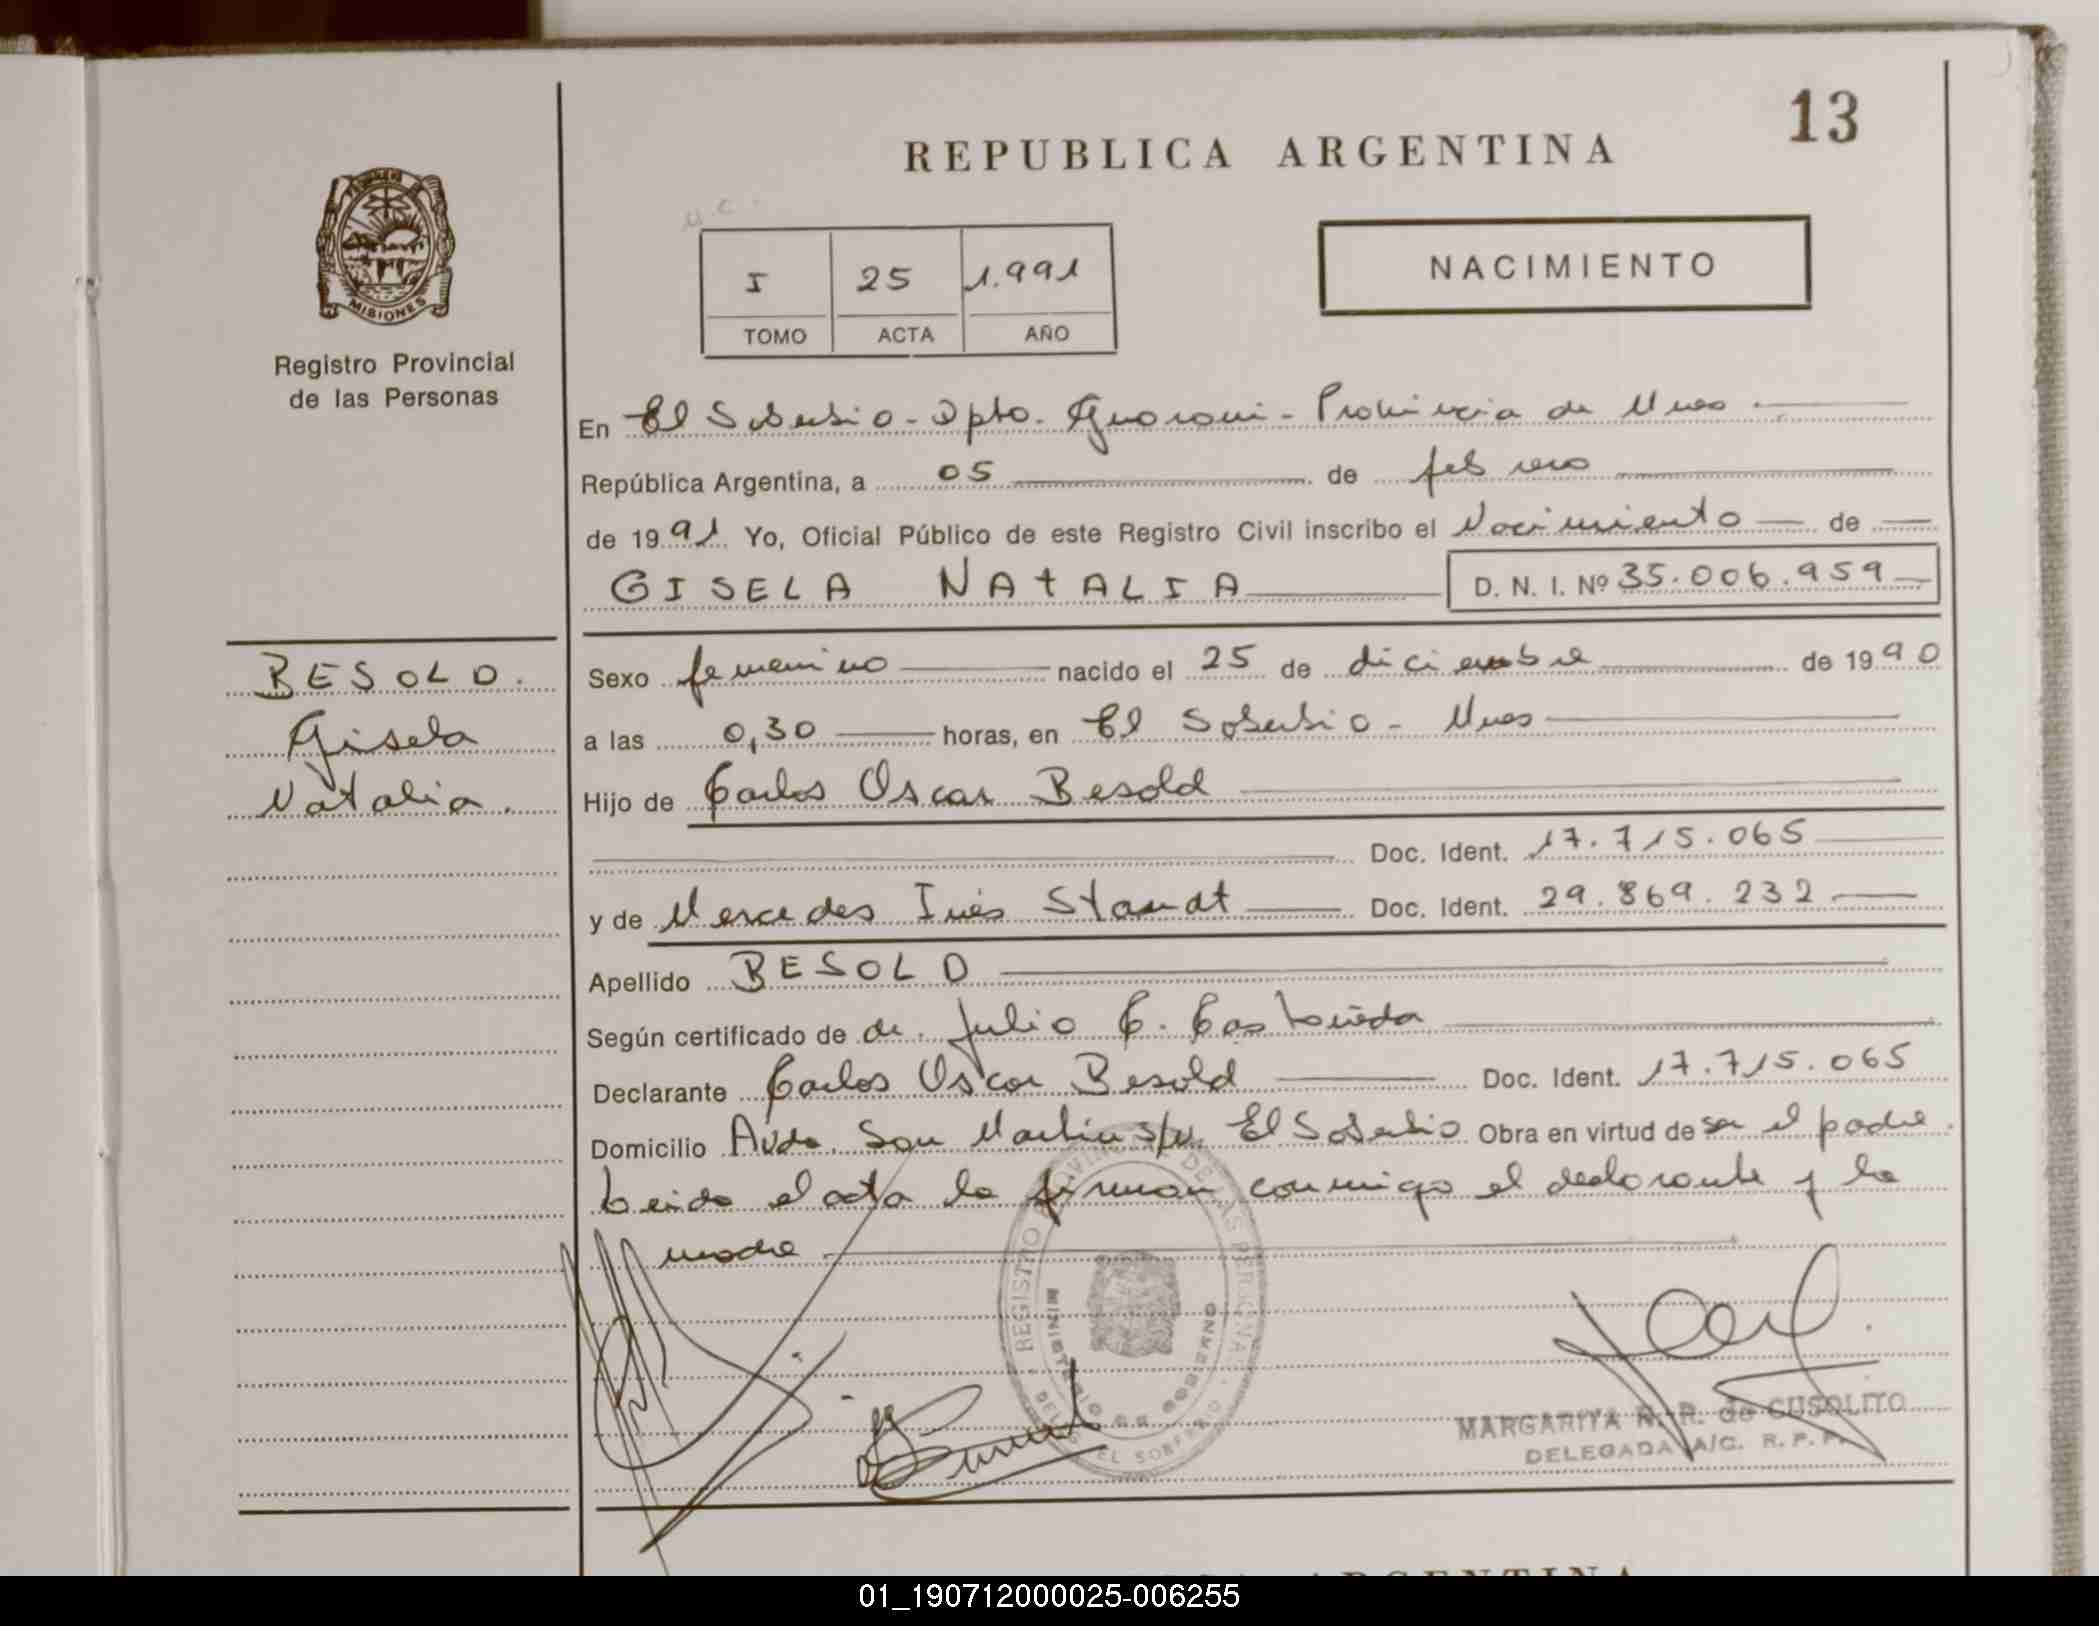 13
REPUBLICA ARGENTINA
MISIONES
Registro Provincial
de las Personas
I 25 1.991
TOMO ACTA AÑO
NACIMIENTO
En El Soberbio - Dpto. Guarani - Provincia de Mnes
República Argentina, a 05 de febrero
de 1991 Yo, Oficial Público de este Registro Civil inscribo el Nacimiento de
GISELA NATALIA D. N. I. Nº 35.006.959
BESOLD.
Gisela
Natalia.
Sexo femenino nacido el 25 de diciembre de 1990
a las 0,30 horas, en El Soberbio - Mnes
Hijo de Carlos Oscar Besold
Doc. Ident. 17.715.065
y de Mercedes Inés Doc. Ident. 29.869.232
Apellido BESOLD
Según certificado de dr. Julio C. Castañeda
Declarante Carlos Oscar Besold Doc. Ident. 17.715.065
Domicilio Avda. San Martin s/n. El Soberbio Obra en virtud de ser el padre.
Leida el acta la firman conmigo el declarante y la
madre
REGISTRO PROVINCIAL DE LAS PERSONAS
MINISTERIO DE GOBIERNO
DELEG. EL SOBERBIO
MARGARITA R. R. de CUSOLITO
DELEGADA A/C. R. P. P.
ARGENTINA
01_190712000025-006255